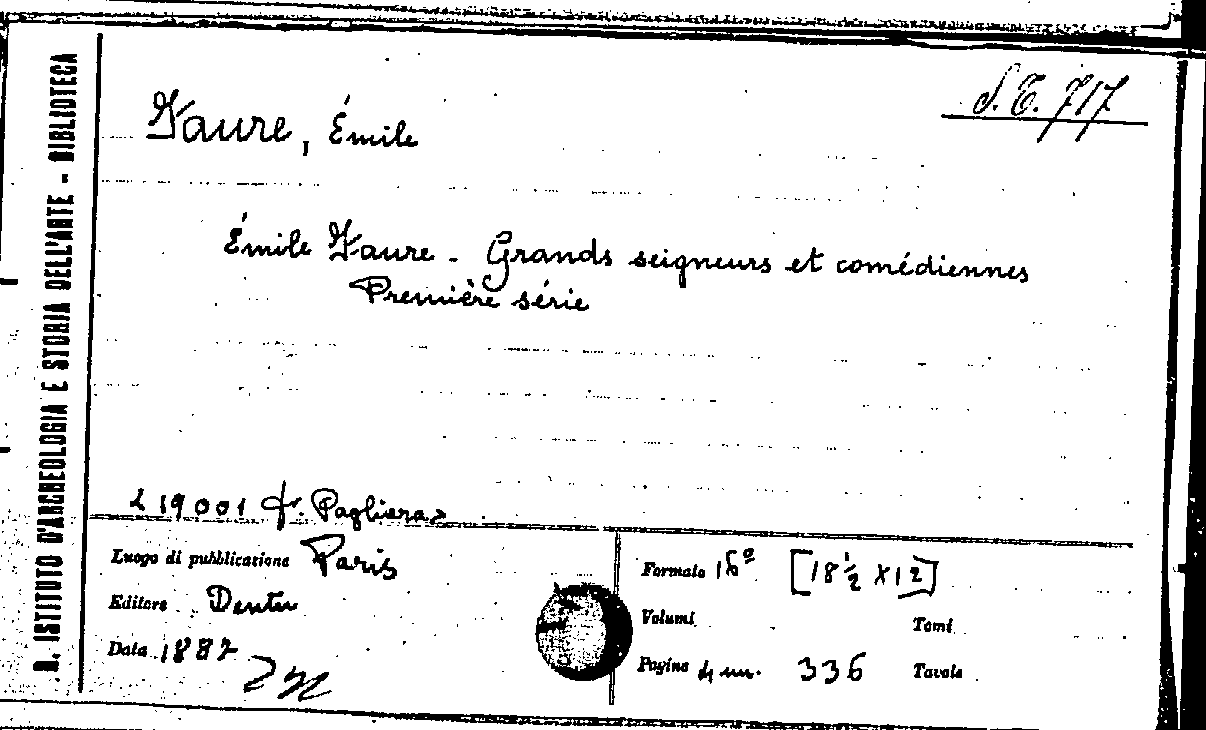 R. ISTITUTO D'ARCHEOLOGIA E STORIA DELL'ARTE - BIBLIOTECA
S.E. 717
Faure, Émile
Émile Faure - Grands seigneurs et comédiennes
Première série
219001 f. Pagliara
Luogo di pubblicazione Paris
Editore Dentu
Data 1887
Formato 16º [18½ X 12]
Volumi Tomi
Pagine 336 Tavole